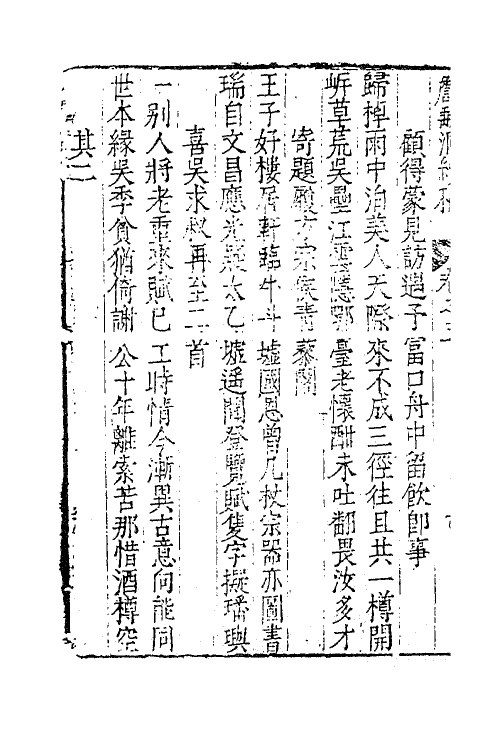 顧得蒙見訪遇于富口舟中留飲卽事
歸棹雨中泊美人天際來不成三徑往且共一樽開
蚚草荒吳壘江雲隱鄂臺老懷酣未吐翻畏汝多才
寄題殿方宗侯青藜閣
王子好樓居軒臨牛斗墟國恩曾几杖宗器亦圖書
瑞自文昌應光太乙墟遥聞登覽賦隻字擬璠璵
喜吳求叔再至二首
一别人將老重來賦已工時情今漸異古意向能同
世本緣吳季貧猶倚謝公十年離索苦那惜酒樽空
其二